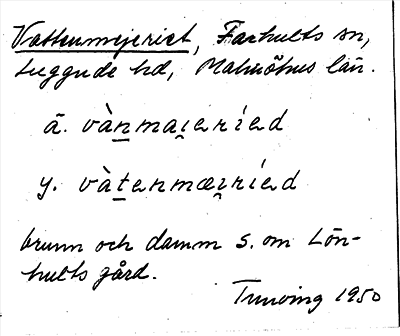 Vattenmejeriet, Farhults sn,
Luggude hd, Malmöhus län.
ä. vànmai̯eríed
y. vàtenmæi̯ríed
brunn och damm s. om Lön-
hults gård.
1950